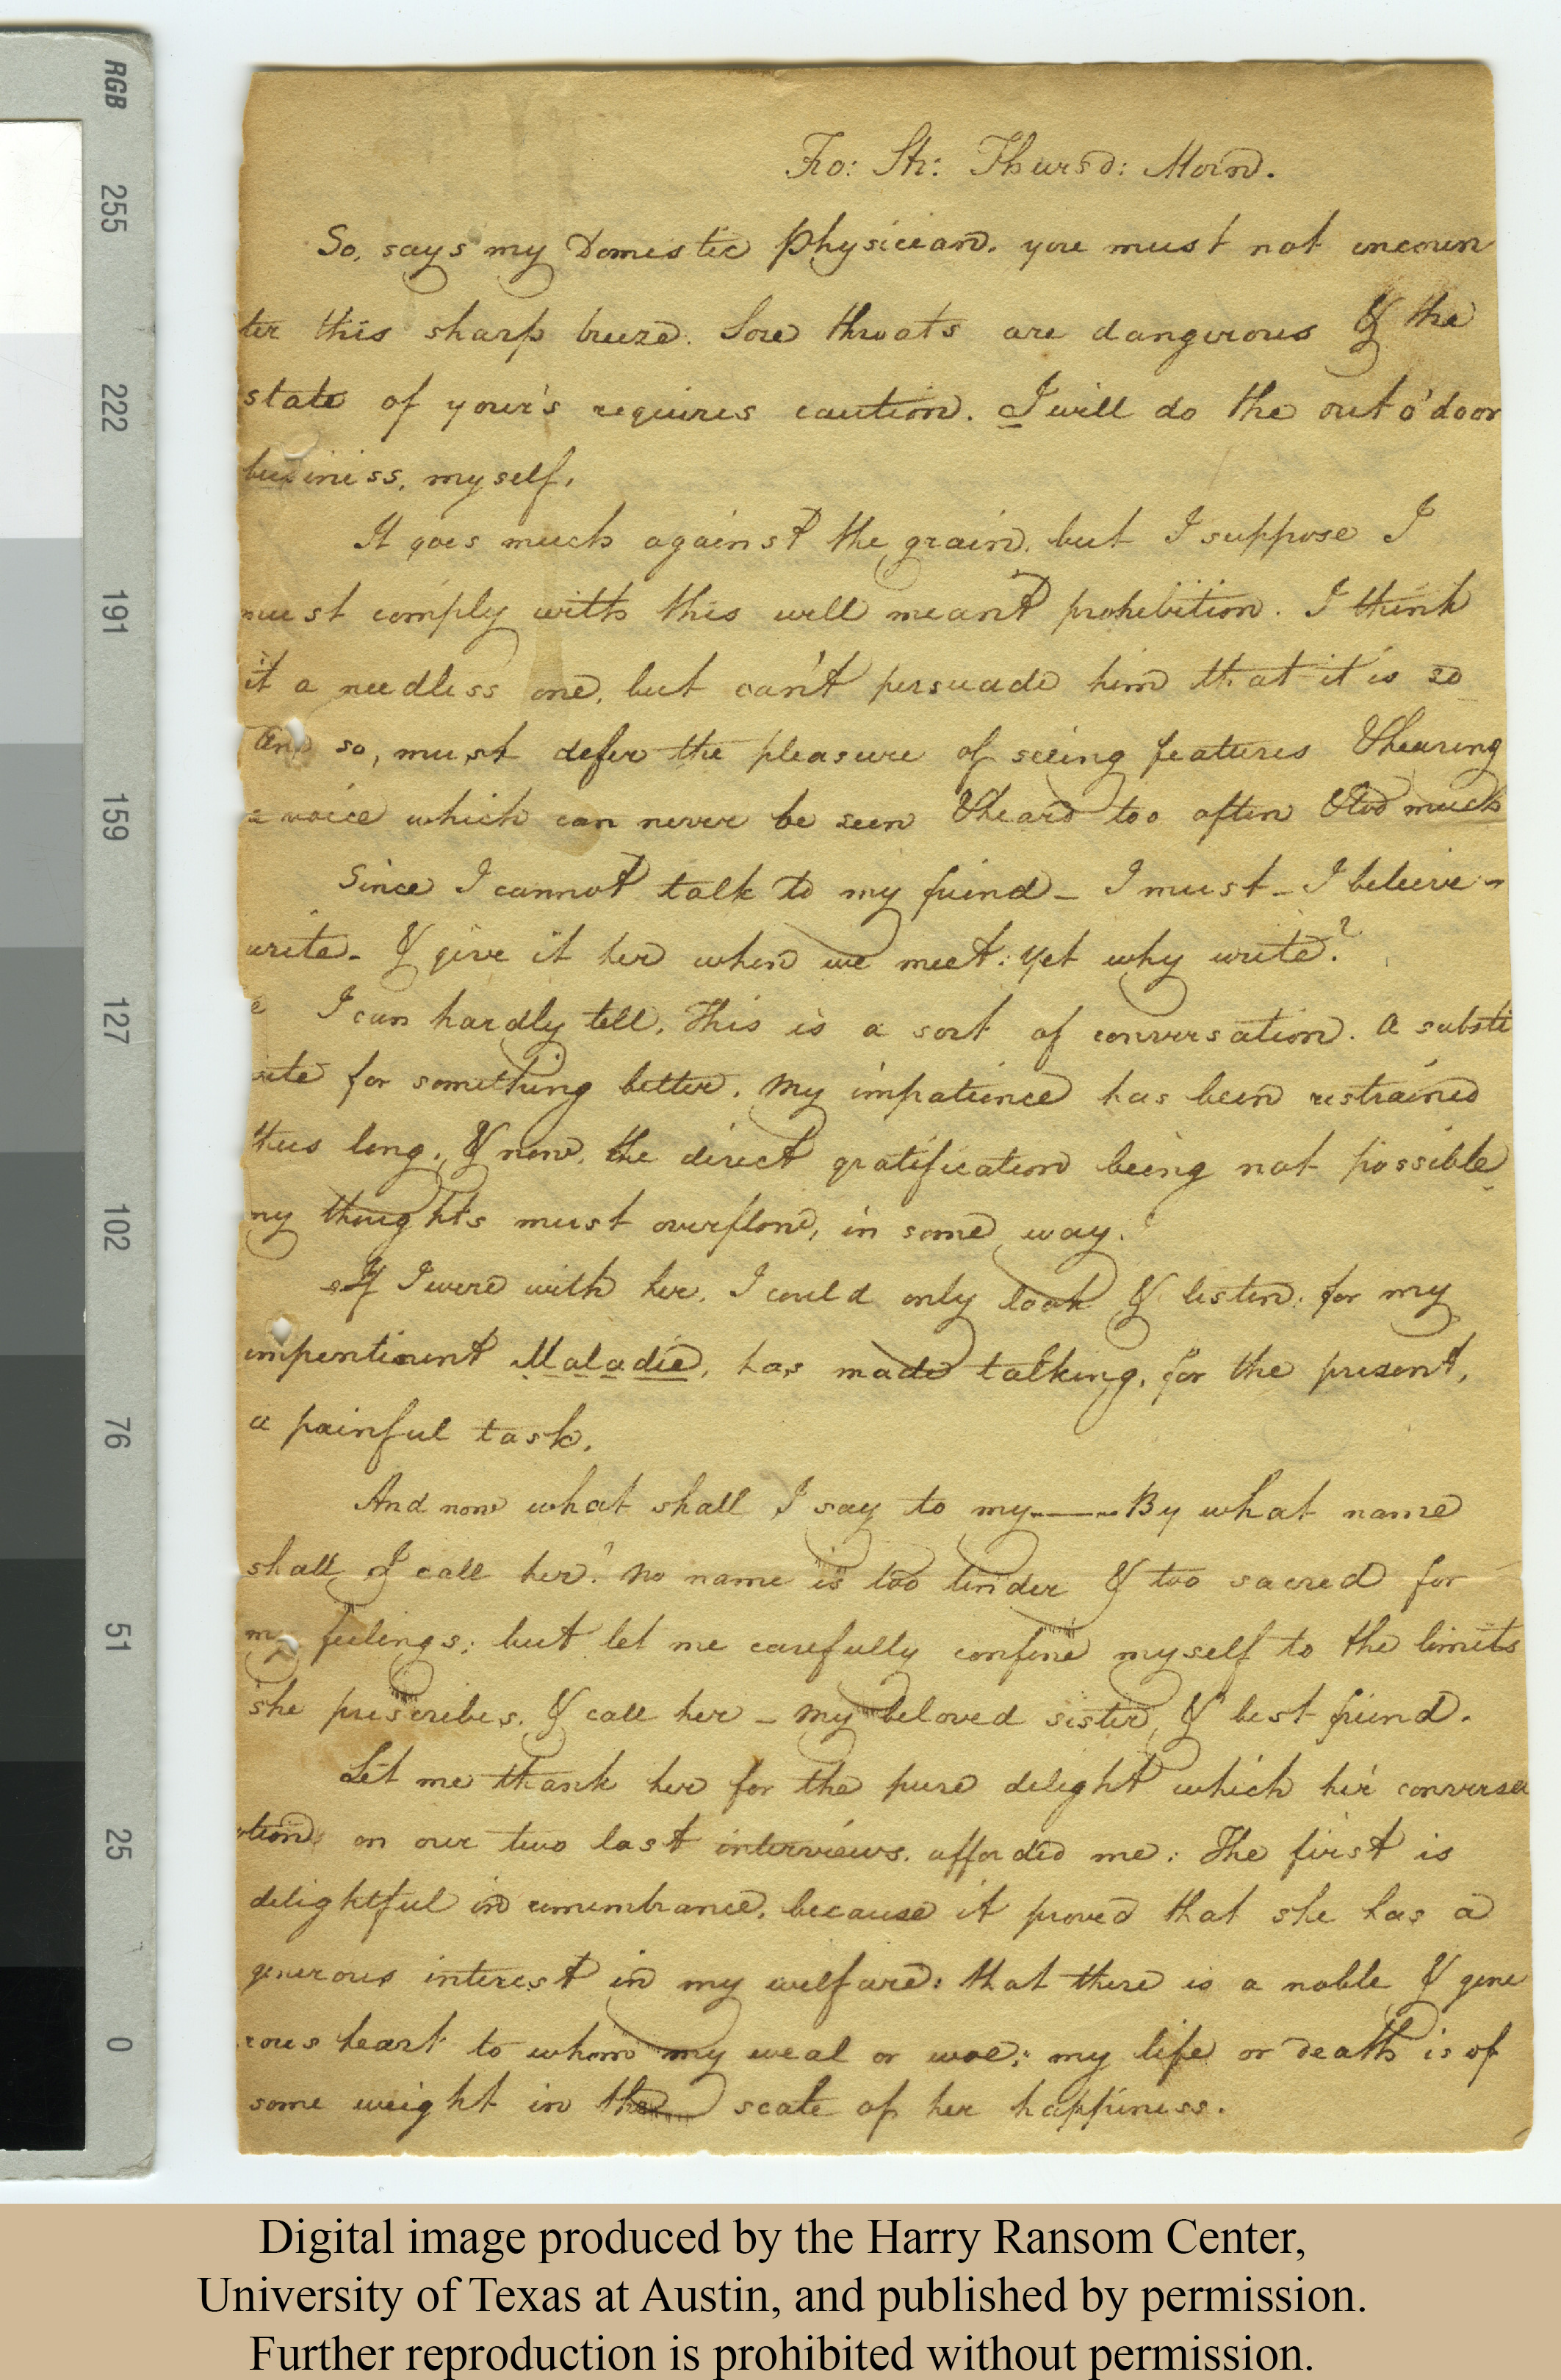 RGB
255
222
191
159
127
102
76
51
25
0
Fro: Str: Thursd: Morn.
So, says my Domestic Physician, you must not encoun
ter this sharp breeze. Sore throats are dangerous & the
state of your's requires caution. I will do the out o'door
business, myself.
It goes much against the grain, but I suppose I
must comply with this well meant prohibition. I think
it a needless one, but can't persuade him that it is so
And so, must defer the pleasure of seeing features & hearing
a voice which can never be seen & heard too often & too much
Since I cannot talk to my friend – I must – I believe –
write – & give it her when we meet: yet why write?
I can hardly tell. This is a sort of conversation. A substi
tute for something better. My impatience has been restrained
thus long, & now, the direct gratification being not possible
my thoughts must overflow, in some way.
If I were with her, I could only look & listen: for my
impertinent Maladie, has made talking, for the present,
a painful task.
And now what shall I say to my —— By what name
shall I call her? No name is too tender & too sacred for
my feelings; but let me carefully confine myself to the limits
she prescribes, & call her – My beloved sister & best friend.
Let me thank her for the pure delight which her conversa
tion, on our two last interviews, afforded me: The first is
delightful in remembrance, because it proved that she has a
generous interest in my welfare: that there is a noble & gene
rous heart to whom my weal or woe; my life or death is of
some weight in the scale of her happiness.
Digital image produced by the Harry Ransom Center,
University of Texas at Austin, and published by permission.
Further reproduction is prohibited without permission.